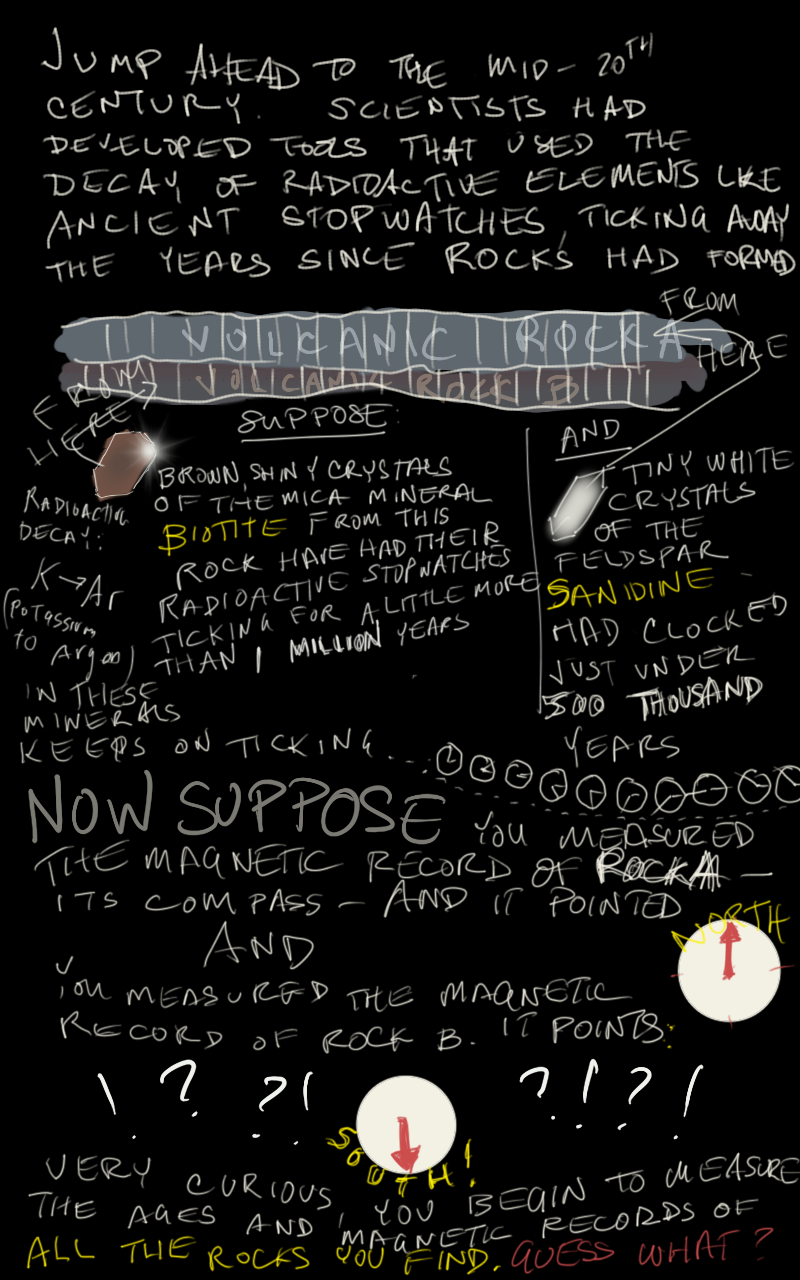 JUMP AHEAD TO THE MID-20TH
CENTURY. SCIENTISTS HAD
DEVELOPED TOOLS THAT USED THE
DECAY OF RADIOACTIVE ELEMENTS LIKE
ANCIENT STOPWATCHES, TICKING AWAY
THE YEARS SINCE ROCKS HAD FORMED
FROM
HERE
VOLCANIC ROCK A
VOLCANIC ROCK B
FROM
HERE
SUPPOSE:
BROWN, SHINY CRYSTALS
OF THE MICA MINERAL
BIOTITE FROM THIS
ROCK HAVE HAD THEIR
RADIOACTIVE STOPWATCHES
TICKING FOR A LITTLE MORE
THAN 1 MILLION YEARS
AND
TINY WHITE
CRYSTALS
OF THE
FELDSPAR
SANIDINE
HAD CLOCKED
JUST UNDER
500 THOUSAND
YEARS
RADIOACTIVE
DECAY:
K→Ar
(POTASSIUM
to Argon)
IN THESE
MINERALS
KEEPS ON TICKING...
NOW SUPPOSE
YOU MEASURED
THE MAGNETIC RECORD OF ROCK A —
ITS COMPASS — AND IT POINTED
NORTH
AND
YOU MEASURED THE MAGNETIC
RECORD OF ROCK B. IT POINTS:
! ? ?! ?!?!
SOUTH!
VERY CURIOUS, YOU BEGIN TO MEASURE
THE AGES AND MAGNETIC RECORDS OF
ALL THE ROCKS YOU FIND. GUESS WHAT?